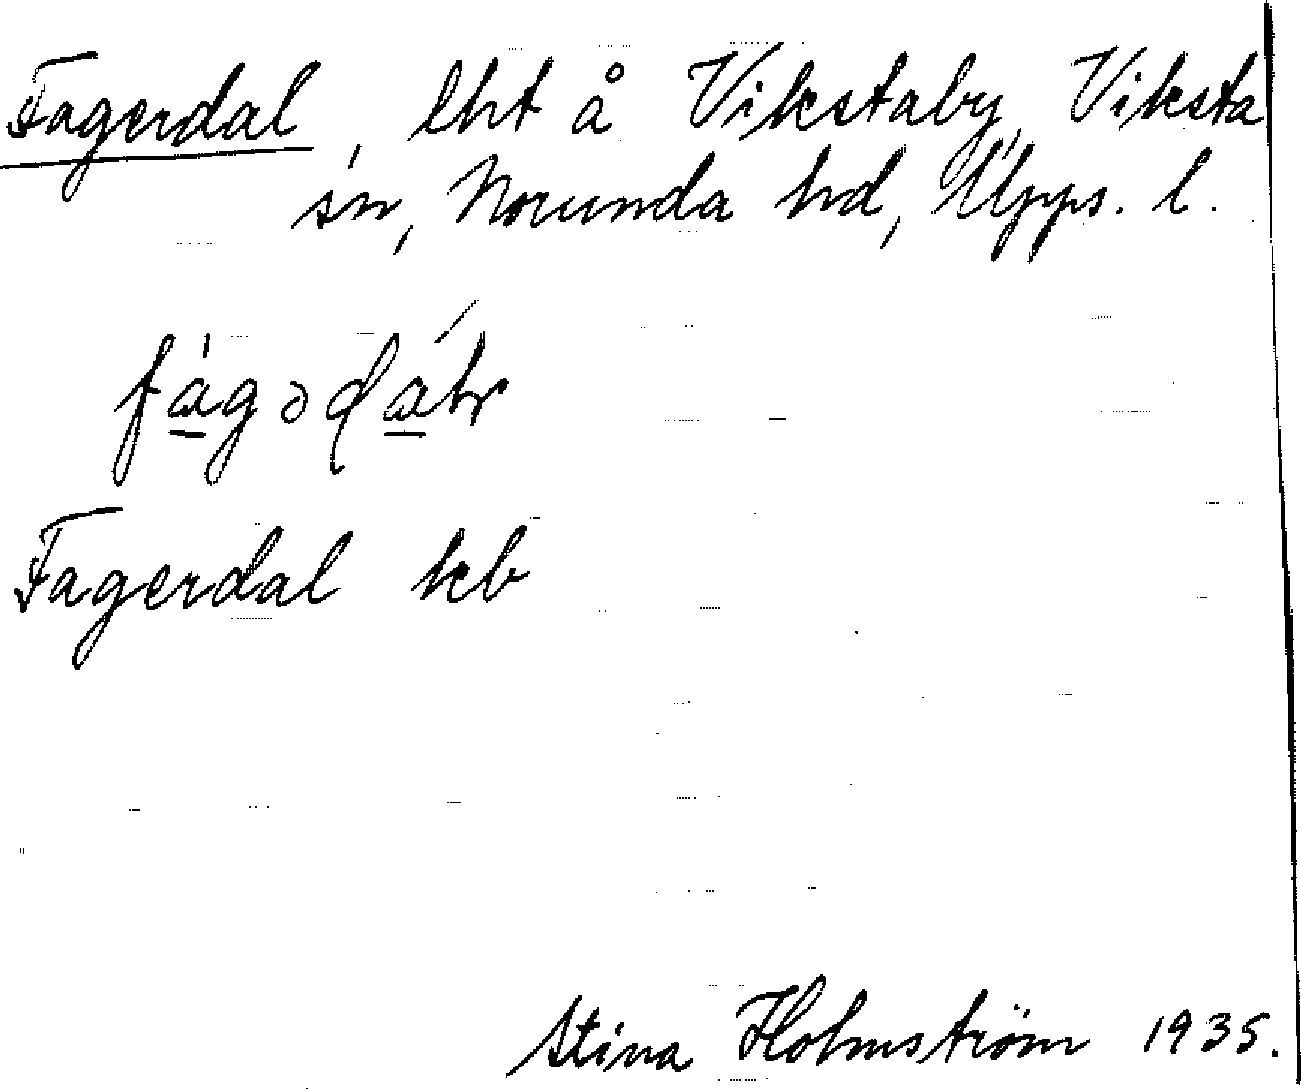 Fagerdal, lht å Vikstaby, Viksta
sn, Norunda hd, Upps. l.
Fagerdal kb
Stina Holmström 1935.